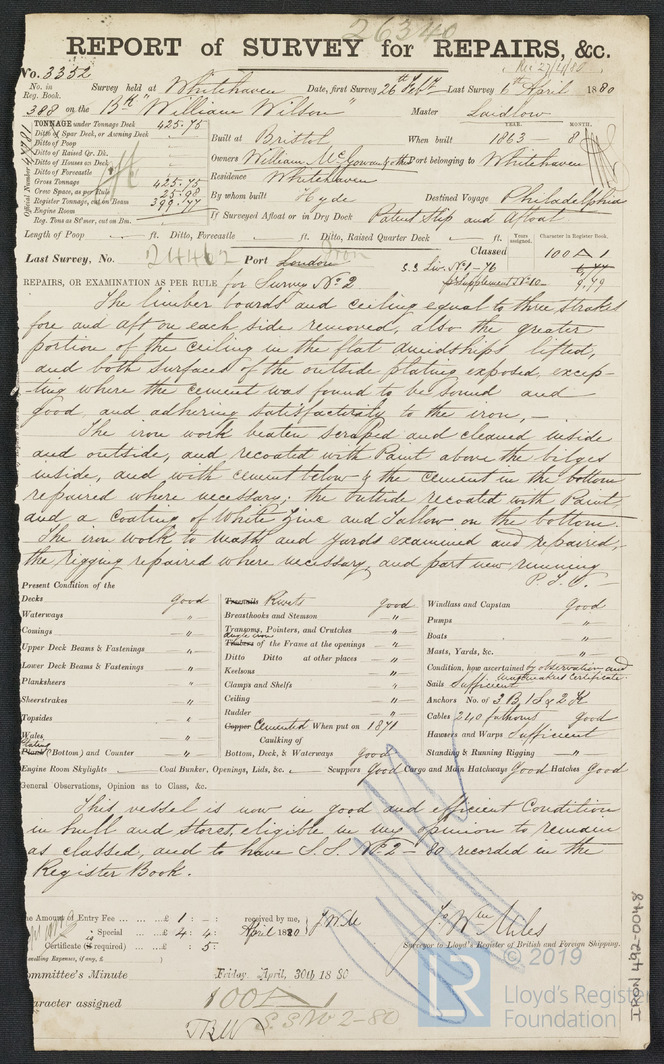 26340
REPORT of SURVEY for REPAIRS, &c.
Rec 27/4/80
No. 3352
No. in Reg. Book. Survey held at Whitehaven Date, first Survey 26th Feby Last Survey 6th April 1880
388 on the Bk "William Wilson" Master Laidlaw
TONNAGE under Tonnage Deck 425.75
Ditto of Spar Deck, or Awning Deck
Ditto of Poop
Ditto of Raised Qr. Dk.
Ditto of Houses on Deck
Ditto of Forecastle
Gross Tonnage 425.75
Crew Space, as per Rule 25.98
Register Tonnage, cut on Beam 399.77
Engine Room
Reg. Tons as St'mer, cut on Bm.
Official Number
YEAR. MONTH.
Built at Bristol When built 1863 - 8
Owners William McGowan & others Port belonging to Whitehaven
Residence Whitehaven
By whom built Hyde Destined Voyage Philadelphia
If Surveyed Afloat or in Dry Dock Patent Slip and Afloat
Length of Poop ft. Ditto, Forecastle ft. Ditto, Raised Quarter Deck ft.
Years assigned. Character in Register Book.
Last Survey, No. 24462 Port London Iron Classed 100 A 1
S.S Liv. No 1-76 6,77
pr Supplement No 10 - 9,79
REPAIRS, OR EXAMINATION AS PER RULE for Survey No 2.
The limber boards and ceiling equal to three strakes
fore and aft on each side removed, also the greater
portion of the ceiling in the flat amidships lifted,
and both surfaces of the outside plating exposed, excep-
-ting where the cement was found to be sound and
good and adhering satisfactorily to the iron, -
The iron work beaten scraped and cleaned inside
and outside, and recoated with Paint above the bilges
inside, and with cement below & the cement in the bottom
repaired where necessary; the outside recoated with Paint
and a coating of White Zinc and Tallow on the bottom
The iron work to masts and yards examined and repaired,
the rigging repaired where necessary, and part new running
P.T.O.
Present Condition of the
Decks good
Waterways "
Comings "
Upper Deck Beams & Fastenings "
Lower Deck Beams & Fastenings "
Planksheers "
Sheerstrakes "
Topsides "
Wales "
Plating
Plank (Bottom) and Counter "
Treenails Rivets good
Breasthooks and Stemson "
Transoms, Pointers, and Crutches "
angle iron
Timbers of the Frame at the openings "
Ditto Ditto at other places "
Keelsons "
Clamps and Shelfs "
Ceiling "
Rudder "
Copper Cemented When put on 1871
Caulking of
Bottom, Deck, & Waterways good
Windlass and Capstan good
Pumps "
Boats "
Masts, Yards, &c. "
Condition, how ascertained by observation and
Sailmakers Certificate
Sails Sufficient
Anchors No. of 3 B, 1 S & 2 K
Cables 240 fathoms good
Hawsers and Warps Sufficient
Standing & Running Rigging "
Engine Room Skylights Coal Bunker, Openings, Lids, &c. Scuppers Good Cargo and Main Hatchways Good Hatches Good
General Observations, Opinion as to Class, &c.
This vessel is now in good and efficient Condition
in hull and stores, eligible in my opinion to remain
as classed, and to have S.S. No 2 - 80 recorded in the
Register Book.
he Amount of Entry Fee ... ... ... £ 1 : - : received by me, J.W.M
Special ... ... £ 4 : 4 : April 1880
Certificate (if required) ... : 5
(Travelling Expenses, if any, £ )
Jos Wm Miles
Surveyor to Lloyd's Register of British and Foreign Shipping.
ommittee's Minute Friday April, 30th 1880
aracter assigned 100 A 1
S.S No 2-80
IRON 492-0048
LR
© 2019
Lloyd's Register
Foundation